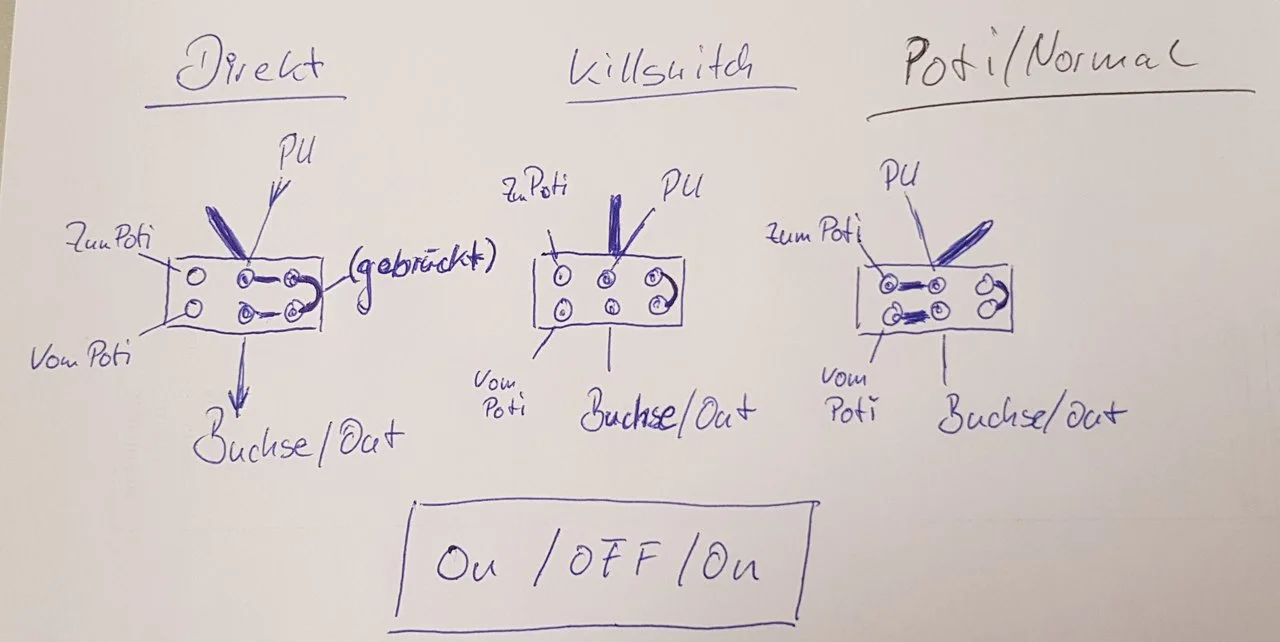 Direkt
Killswitch
Poti/Normal
PU
Zum Poti
(gebrückt)
Vom Poti
Buchse/Out
Zum Poti
PU
Vom
Poti
Buchse/Out
PU
Zum Poti
Vom
Poti
Buchse/Out
On / OFF / On